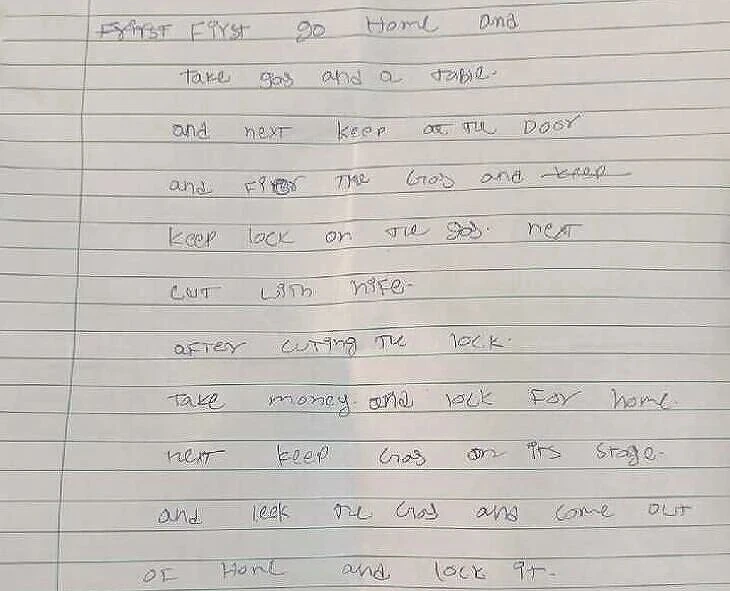 First First go Home and
take gas and a table.
and next keep at the DOOR
and Fier the Gas and keep
keep lock on the gas. next
cut with nife.
after cuting the lock.
take money. and lock for home.
next keep Gas on its stage.
and leek the Gas and come out
of Home and lock it.